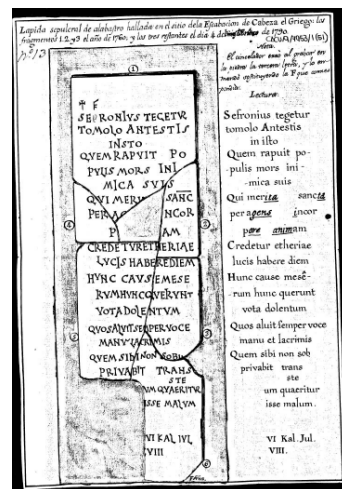 Lapida sepulcral de alabastro hallada en el sitio dela Estaboricon de Cabeza el Griego: los
fragmentos 1. 2. y 3. el año de 1760. y los tres restantes el dia 4 de de 1790.
nº 13
CAI-CU/9/3953/1(51)
Nota.
El cincelador erró al grabar en
la piedra la tercera letra, y lo en-
mendó
Lectura.
1
✝ F
SEFRONIVS TEGETVR
TOMOLO ANTESTIS
INSTO
QVEM RAPVIT PO
PVLIS MORS INI
MICA SVIS
QVI MERI SANC
PERA NCOR
P AM
CREDETVR ETHERIAE
LVCIS HABERE DIEM
HVNC CAVSE MESE
RVM HVNC QVERVNT
VOTA DOLENTVM
QVOS ALVIT SEMPER VOCE
MANV LACRIMIS
QVEM SIBI NON SOB
PRIVABIT TRANS
STE
VM QVAERITVR
ISSE MALVM
VI KAL IVL
VIII
4
2
3
5
6
Sefronius tegetur
tomolo Antestis
in isto
Quem rapuit po-
pulis mors ini-
mica suis
Qui merita sancta
per agens incor
pore animam
Credetur etheriae
lucis habere diem
Hunc cause mesê-
rum hunc querunt
vota dolentum
Quos aluit semper voce
manu et lacrimis
Quem sibi non sob
privabit trans
ste
um quaeritur
isse malum.
VI Kal. Jul.
VIII.